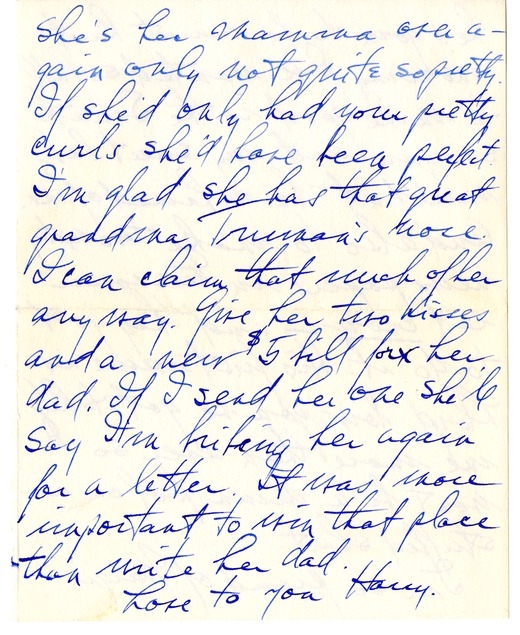 She's her mamma over a-
gain only not quite so pretty.
If she'd only had your pretty
curls she'd have been perfect.
I'm glad she has that great
grandma Truman's nose.
I can claim that much of her
anyway. Give her two kisses
and a new $5 bill for her
dad. If I send her one she'll
say I'm bribing her again
for a letter. It was more
important to win that place
than write her dad.
Love to you Harry.